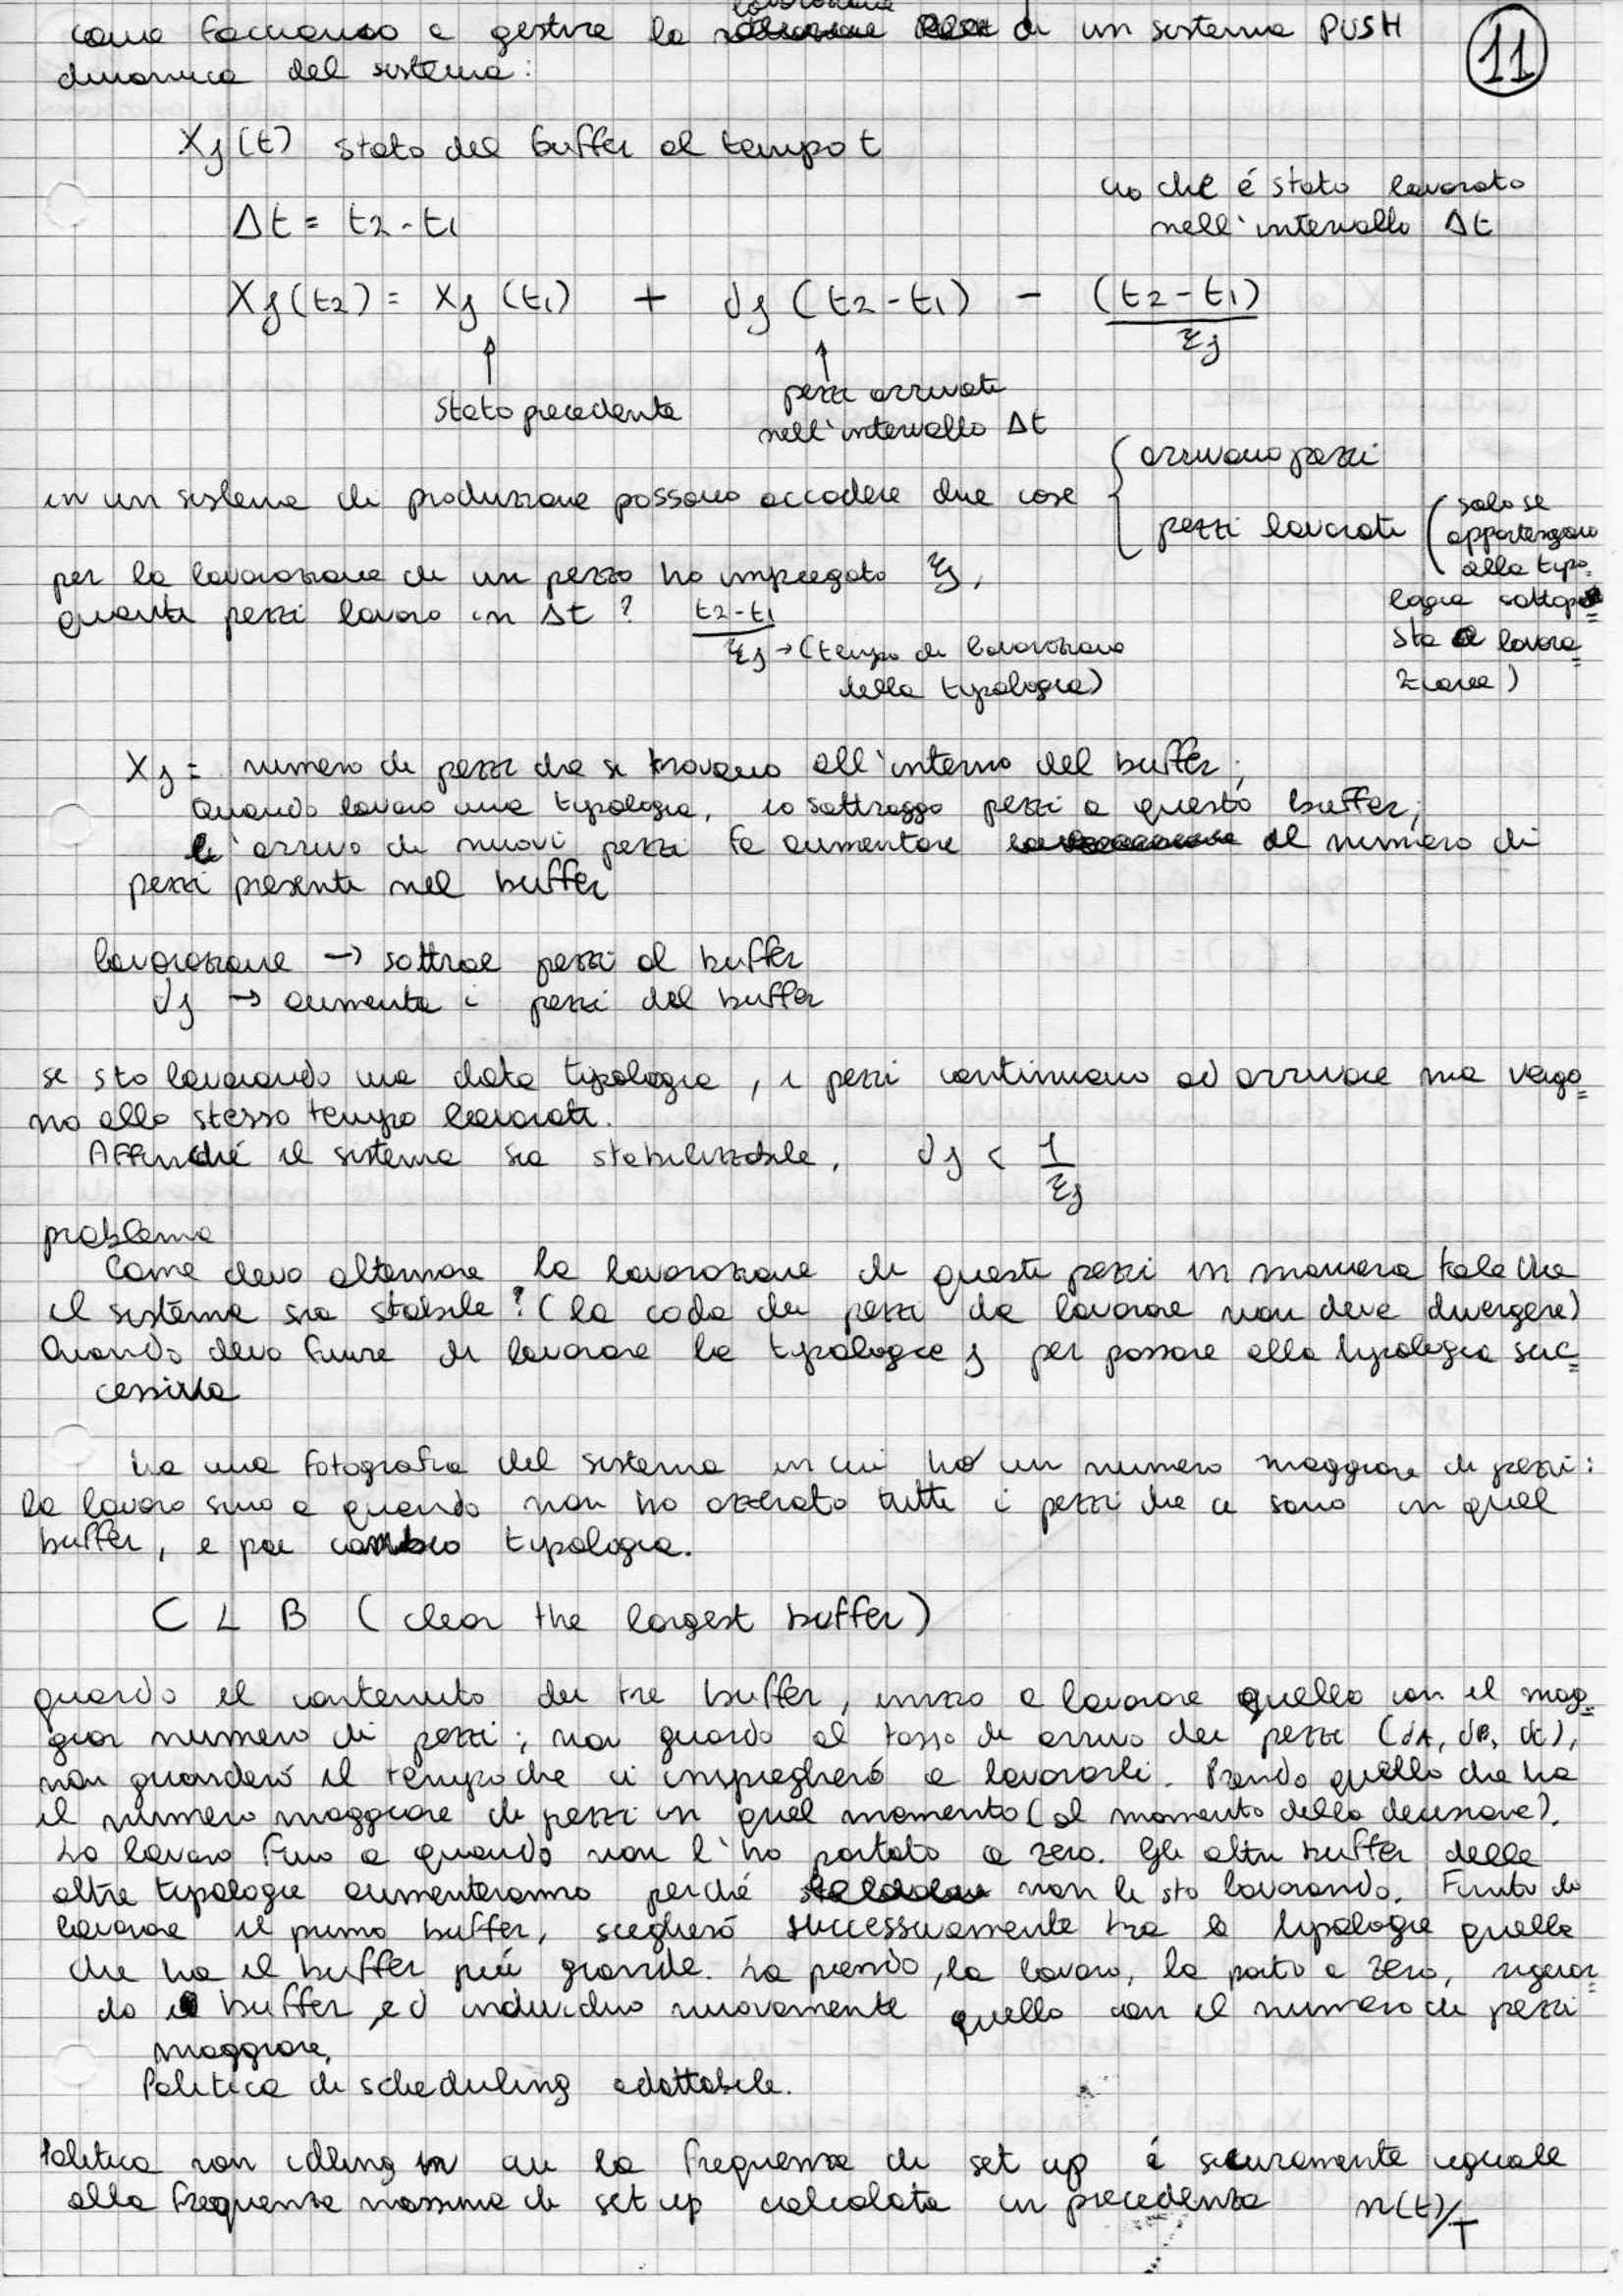 come facciamo a gestire la lavorazione di un sistema PUSH
11
dinamica del sistema:
Xj(t) stato del buffer al tempo t
ciò che é stato lavorato
nell'intervallo Δt
Δt = t2-t1
Xj(t2) = Xj(t1) + dj(t2-t1) - (t2-t1)/τj
↑ stato precedente
↑ pezzi arrivati
nell'intervallo Δt
in un sistema di produzione possono accadere due cose { arrivano pezzi
pezzi lavorati (solo se
appartengono
alla tipo=
logia sottopo=
sta a lavora=
zione)
per la lavorazione di un pezzo ho impiegato τj,
quanti pezzi lavoro in Δt? t2-t1/τj → (tempo di lavorazione
della tipologia)
Xj = numero di pezzi che si trovano all'interno del buffer;
Quando lavoro una tipologia, io sottraggo pezzi a questo buffer;
l'arrivo di nuovi pezzi fa aumentare il numero di
pezzi presenti nel buffer
lavorazione → sottrae pezzi al buffer
dj → aumenta i pezzi del buffer
se sto lavorando una data tipologia, i pezzi continuano ad arrivare ma vengo=
no allo stesso tempo lavorati.
Affinché il sistema sia stabilizzabile, dj < 1/τj
problema
Come devo alternare la lavorazione di questi pezzi in maniera tale che
il sistema sia stabile? (la coda dei pezzi da lavorare non deve divergere)
Quando devo finire di lavorare la tipologia j per passare alla tipologia suc=
cessiva
ho una fotografia del sistema in cui ho un numero maggiore di pezzi:
la lavoro sino a quando non ho azzerato tutti i pezzi che ci sono in quel
buffer, e poi cambio tipologia.
C L B (clear the largest buffer)
guardo il contenuto dei tre buffer, inizio a lavorare quello con il mag=
gior numero di pezzi; non guardo al tasso di arrivo dei pezzi (dA, dB, dC),
non guarderó il tempo che ci impiegheró a lavorarli. Prendo quello che ha
il numero maggiore di pezzi in quel momento (al momento della decisione).
Lo lavoro fino a quando non l'ho portato a zero. Gli altri buffer delle
altre tipologie aumenteranno perché non le sto lavorando. Finito di
lavorare il primo buffer, sceglieró successivamente tra le tipologie quella
che ha il buffer piú grande. La prendo, la lavoro, la porto a zero, riguar=
do il buffer, ed individuo nuovamente quello con il numero di pezzi
maggiore.
Politica di scheduling adattabile.
Politica non idling in cui la frequenza di set up é sicuramente uguale
alla frequenza massima di set up calcolata in precedenza n(t)/T